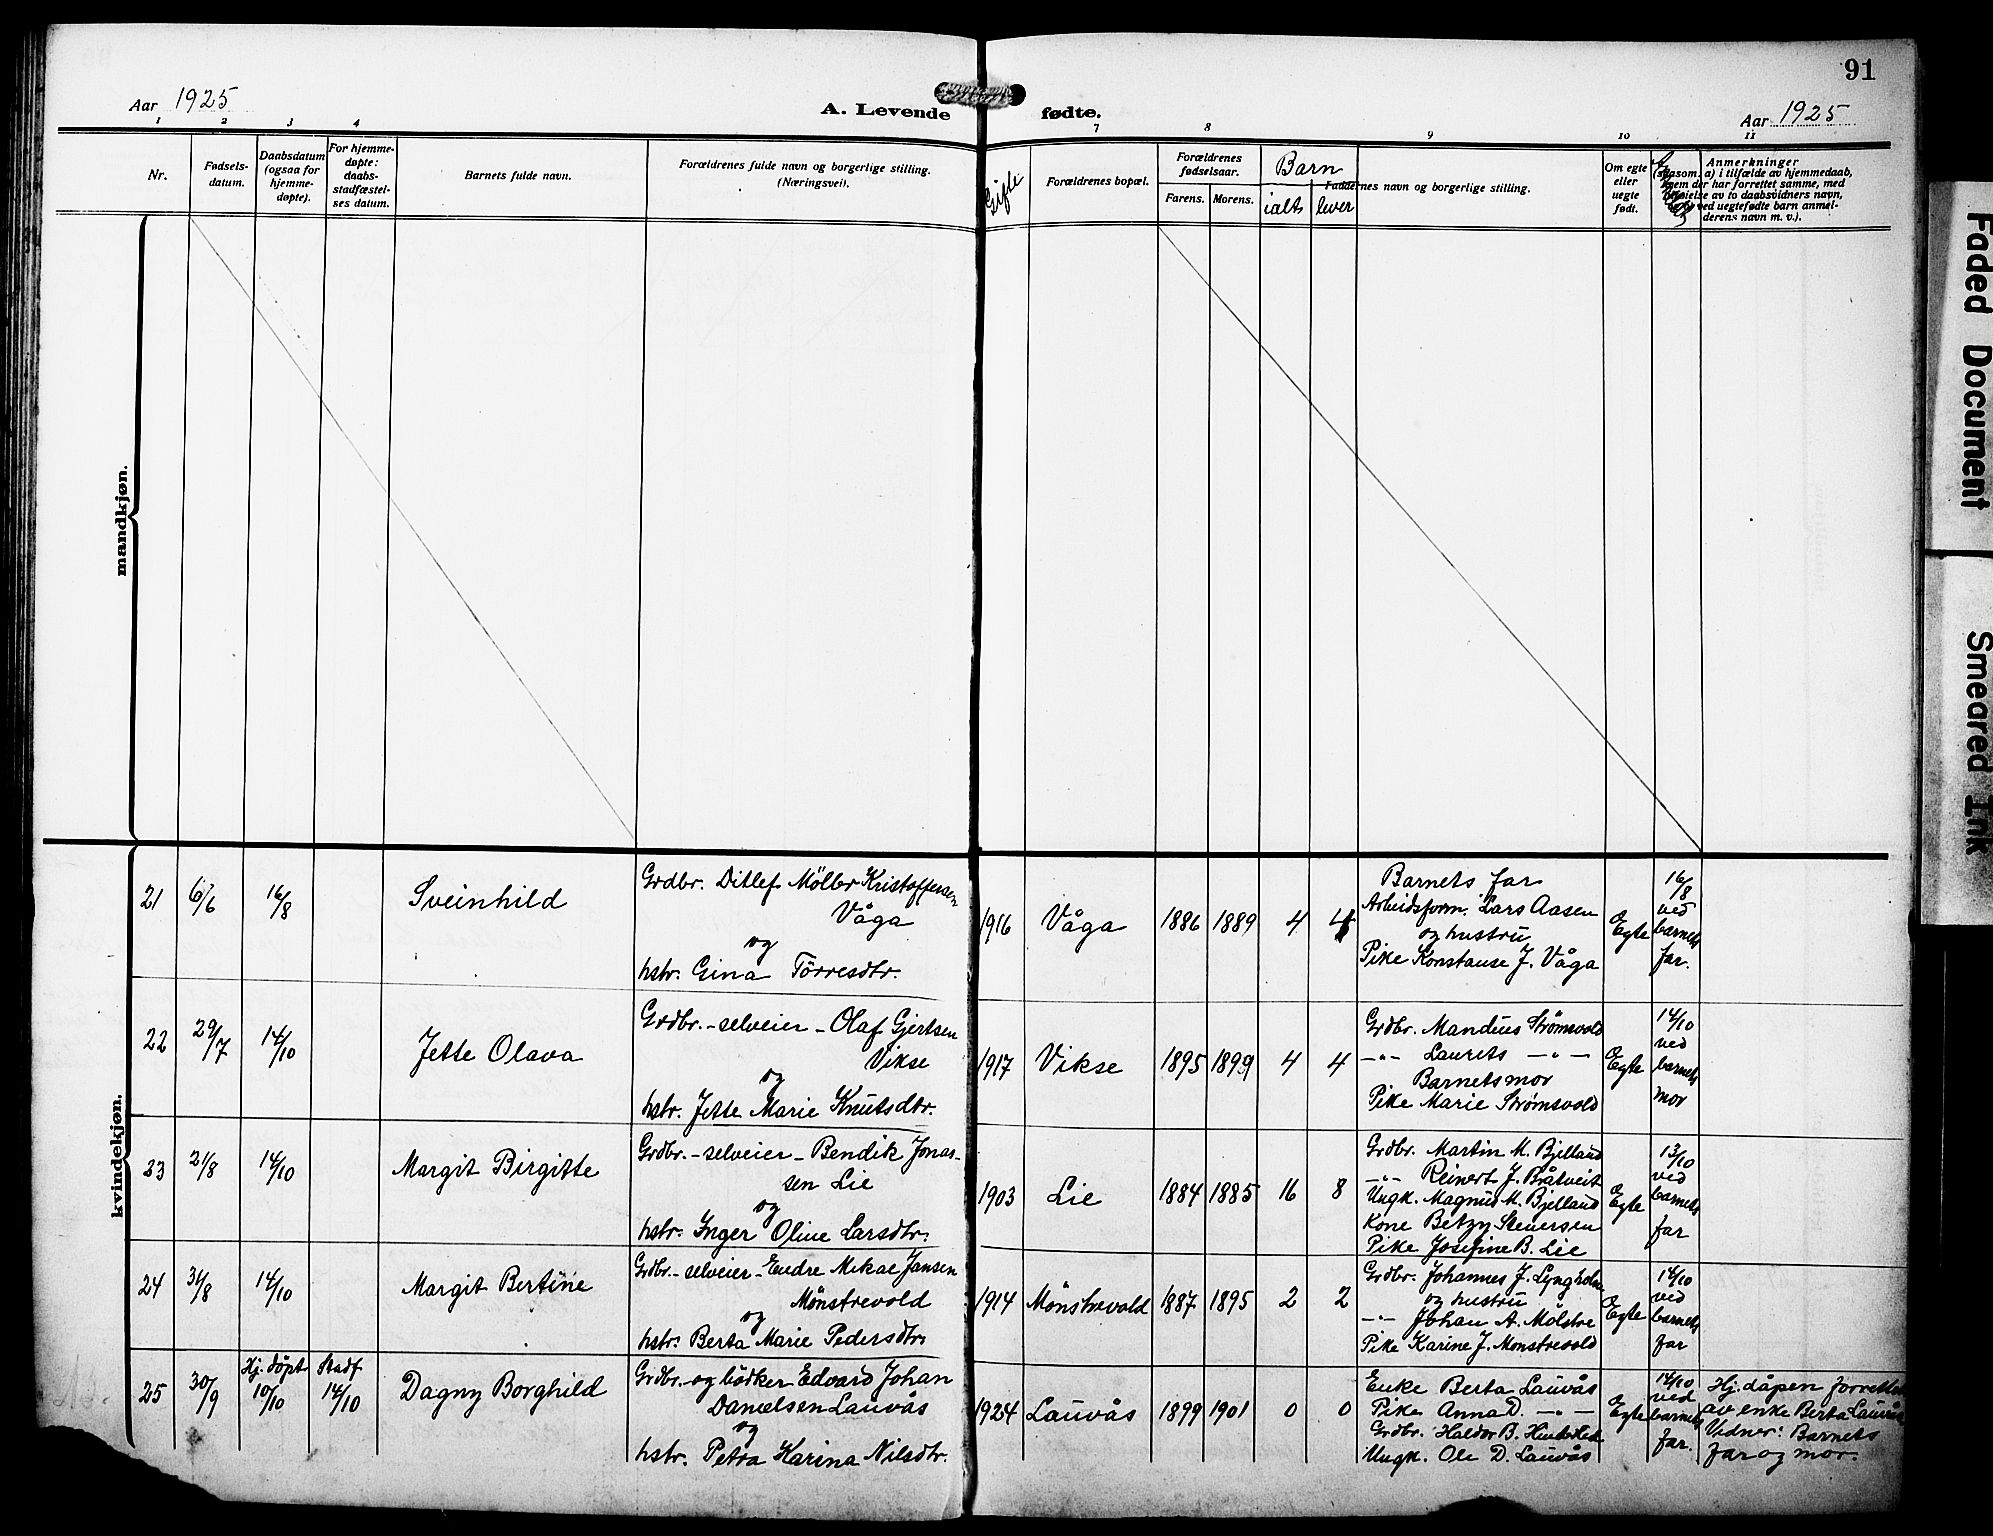 91
Aar 1925
A. Levende fødte.
Aar 1925
1 2 3 4 7 8 9 10 11
Nr.
Fødsels-
datum.
Daabsdatum
(ogsaa for
hjemme-
døpte).
For hjemme-
døpte:
daabs-
stadfæstel-
ses datum.
Barnets fulde navn.
Forældrenes fulde navn og borgerlige stilling.
(Næringsvei).
Gifte
Forældrenes bopæl.
Forældrenes
fødselsaar.
Farens. Morens.
Barn
ialt lever
Faddernes navn og borgerlige stilling.
Om egte
eller
uegte
født.
Anmerkninger
(saasom. a) i tilfælde av hjemmedaab,
hvem der har forrettet samme, med
tilføielse av to daabsvidners navn,
b) ved uegtefødte barn anmel-
derens navn m. v.).
mandkjøn.
kvindekjøn.
21 6/6 16/8 Sveinhild
Grdbr. Ditlef Möller Kristoffersen
Våga
og
hstr. Gina Törresdtr.
1916 Våga 1886 1889 4 4
Barnets far
Arbeidsform. Lars Aasen
og hustru
Pike Konstanse J. Våga
Egte
16/8
ved
barnets
far.
22 29/7 14/10 Jette Olava
Grdbr. - selveier - Olaf Gjertsen
Vikse
og
hstr. Jette Marie Knutsdtr.
1917 Vikse 1895 1899 4 4
Grdbr. Mandius Strømsvold
—"— Laurets —"—
Barnets mor
Pike Marie Strømsvold
Egte
14/10
ved
barnets
mor
23 21/8 14/10 Margit Birgitte
Grdbr. - selveier - Bendik Jonas-
sen Lie
og
hstr. Inger Oline Larsdtr.
1903 Lie 1884 1885 16 8
Grdbr. Martin M. Bjelland
—"— Reinert J. Båtveit
Ungk. Magnus M. Bjelland
Kone Betzy Stenersen
Pike Josefine B. Lie
Egte
13/10
ved
barnets
far
24 31/8 14/10 Margit Bertine
Grdbr. - selveier - Endre Mikae Jansen
Mönstrevold
og
hstr. Berta Marie Pedersdtr.
1914 Mönstrevold 1887 1895 2 2
Grdbr. Johannes J. Lyngholm
og hustru
—"— Johan A. Mölstre
Pike Karine J. Mönstrevold
Egte
14/10
ved
barnets
far
25 30/9 Hj. döpt 10/10 Stadf 14/10 Dagny Borghild
Grdbr. - og bödker Edvard Johan
Danielsen Lauvås
og
hstr. Petra Karina Nilsdtr.
1924 Lauvås 1899 1901 0 0
Enke Berta Lauvås
Pike Anna D. —"—
Grdbr. Haldor B.
Ungk. Ole D. Lauvås
Egte
14/10
ved
barnets
far.
Hj. dåpen forrettet
av enke Berta Lauvås
Vidner: Barnets
far og mor.
Faded Document
Smeared Ink